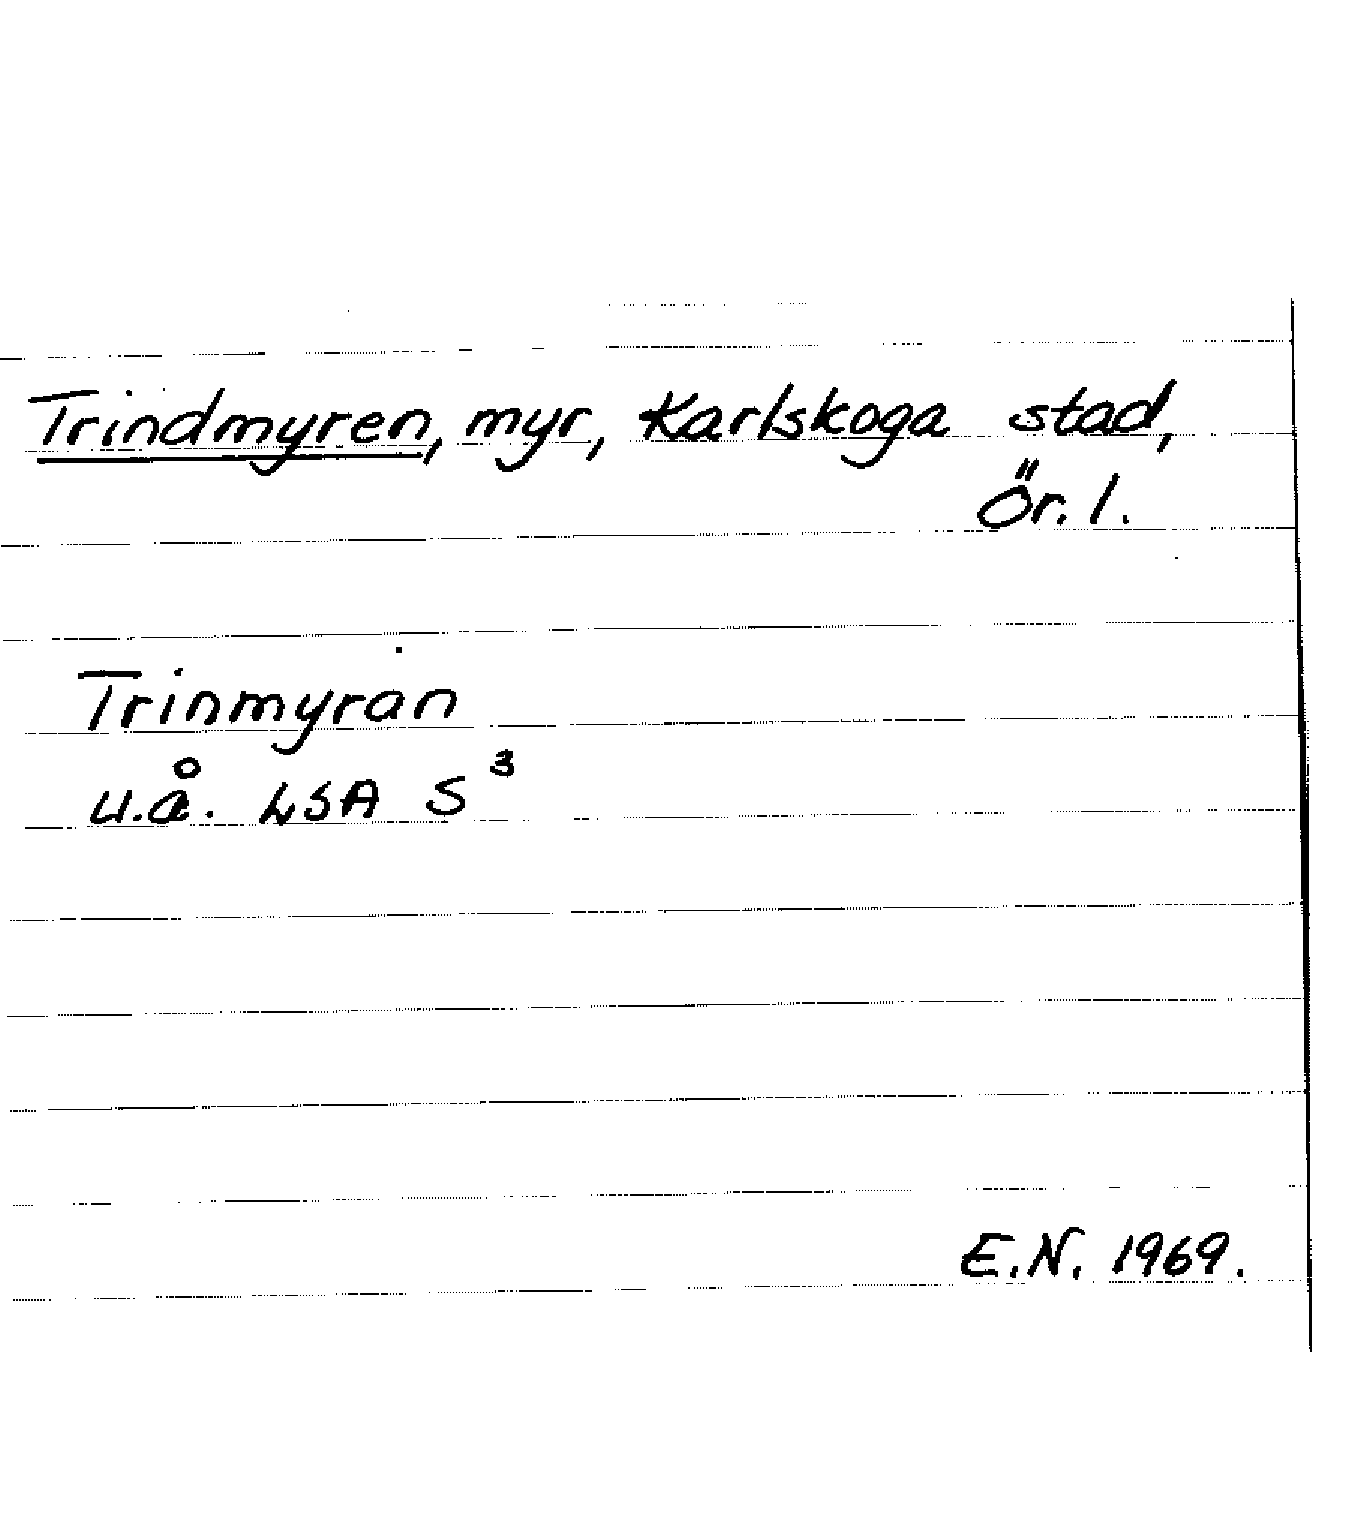 Trindmyren, myr, Karlskoga stad,
Ör. l.
Trinmyran
u.å. LSA S³
E.N. 1969.